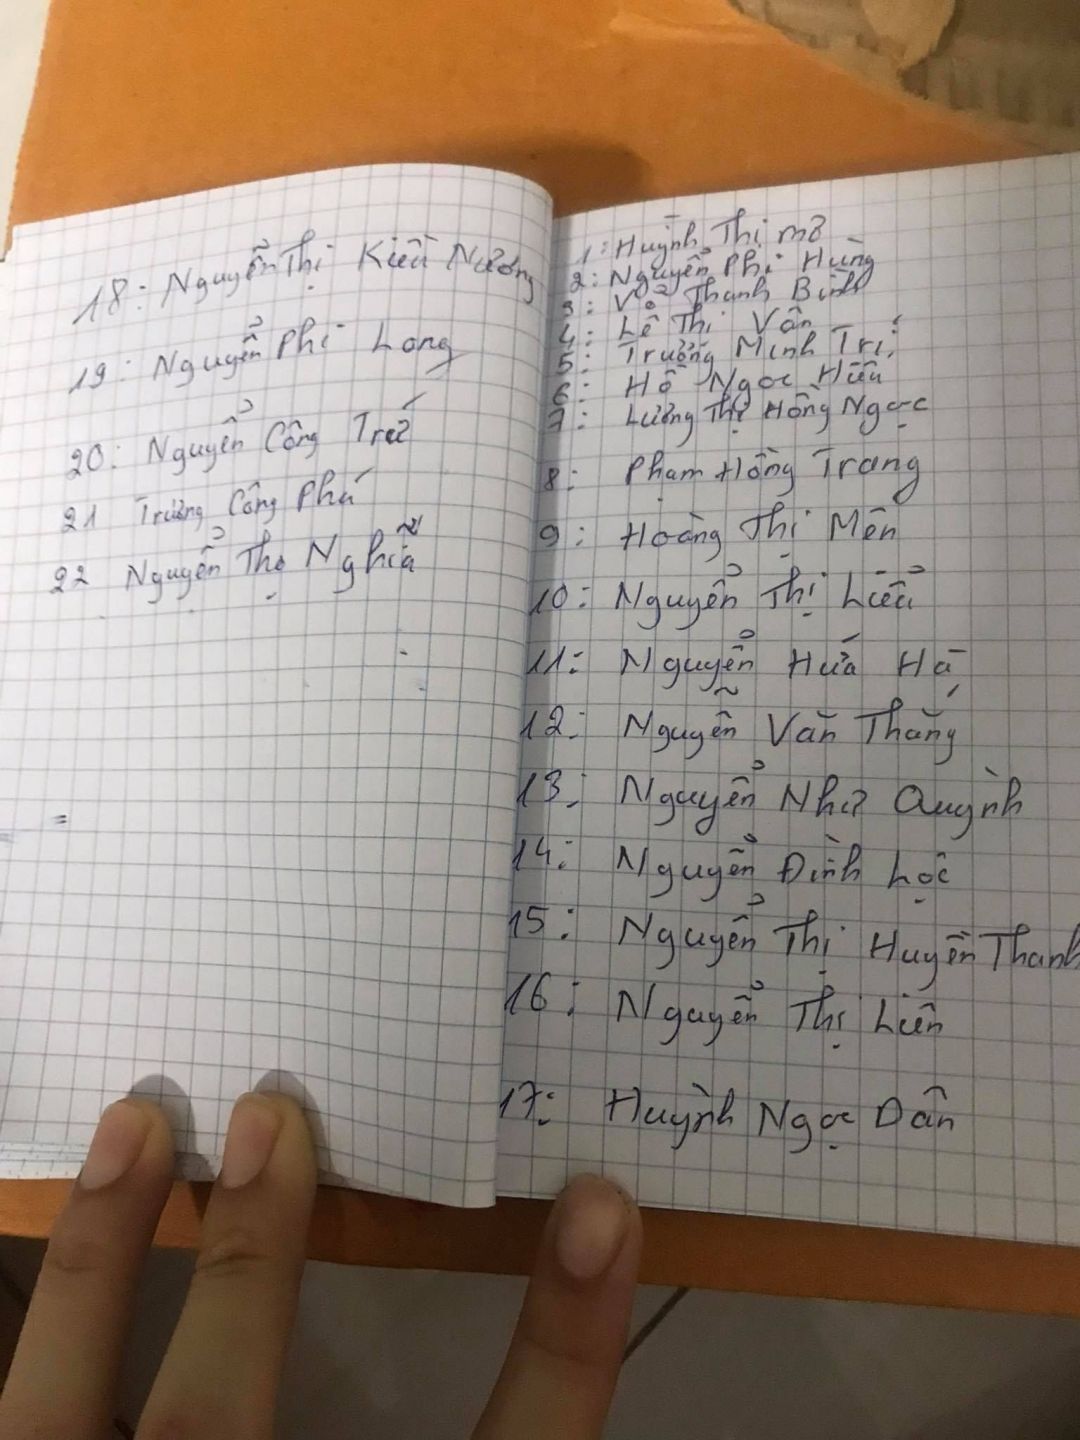 18: Nguyển Thị Kiều Nương
19: Nguyển Phi Long
20: Nguyển Công Trứ
21 Trương Công Phú
22 Nguyển Thọ Nghĩa
1: Huỳnh Thị Mơ
2: Nguyển Phi Hùng
3: Võ Thanh Bình
4: Lê Thị Vân
5: Trương Minh Trí
6: Hồ Ngọc Hữu
7: Lương Thị Hồng Ngọc
8: Phạm Hồng Trang
9: Hoàng Thị Mên
10: Nguyển Thị Liểu
11: Nguyển Hứa Hạ
12: Nguyễn Văn Thắng
13: Nguyển Như Quỳnh
14: Nguyển Đình Lộc
15: Nguyển Thị Huyền Thanh
16: Nguyển Thị Liên
17: Huỳnh Ngọc Dân